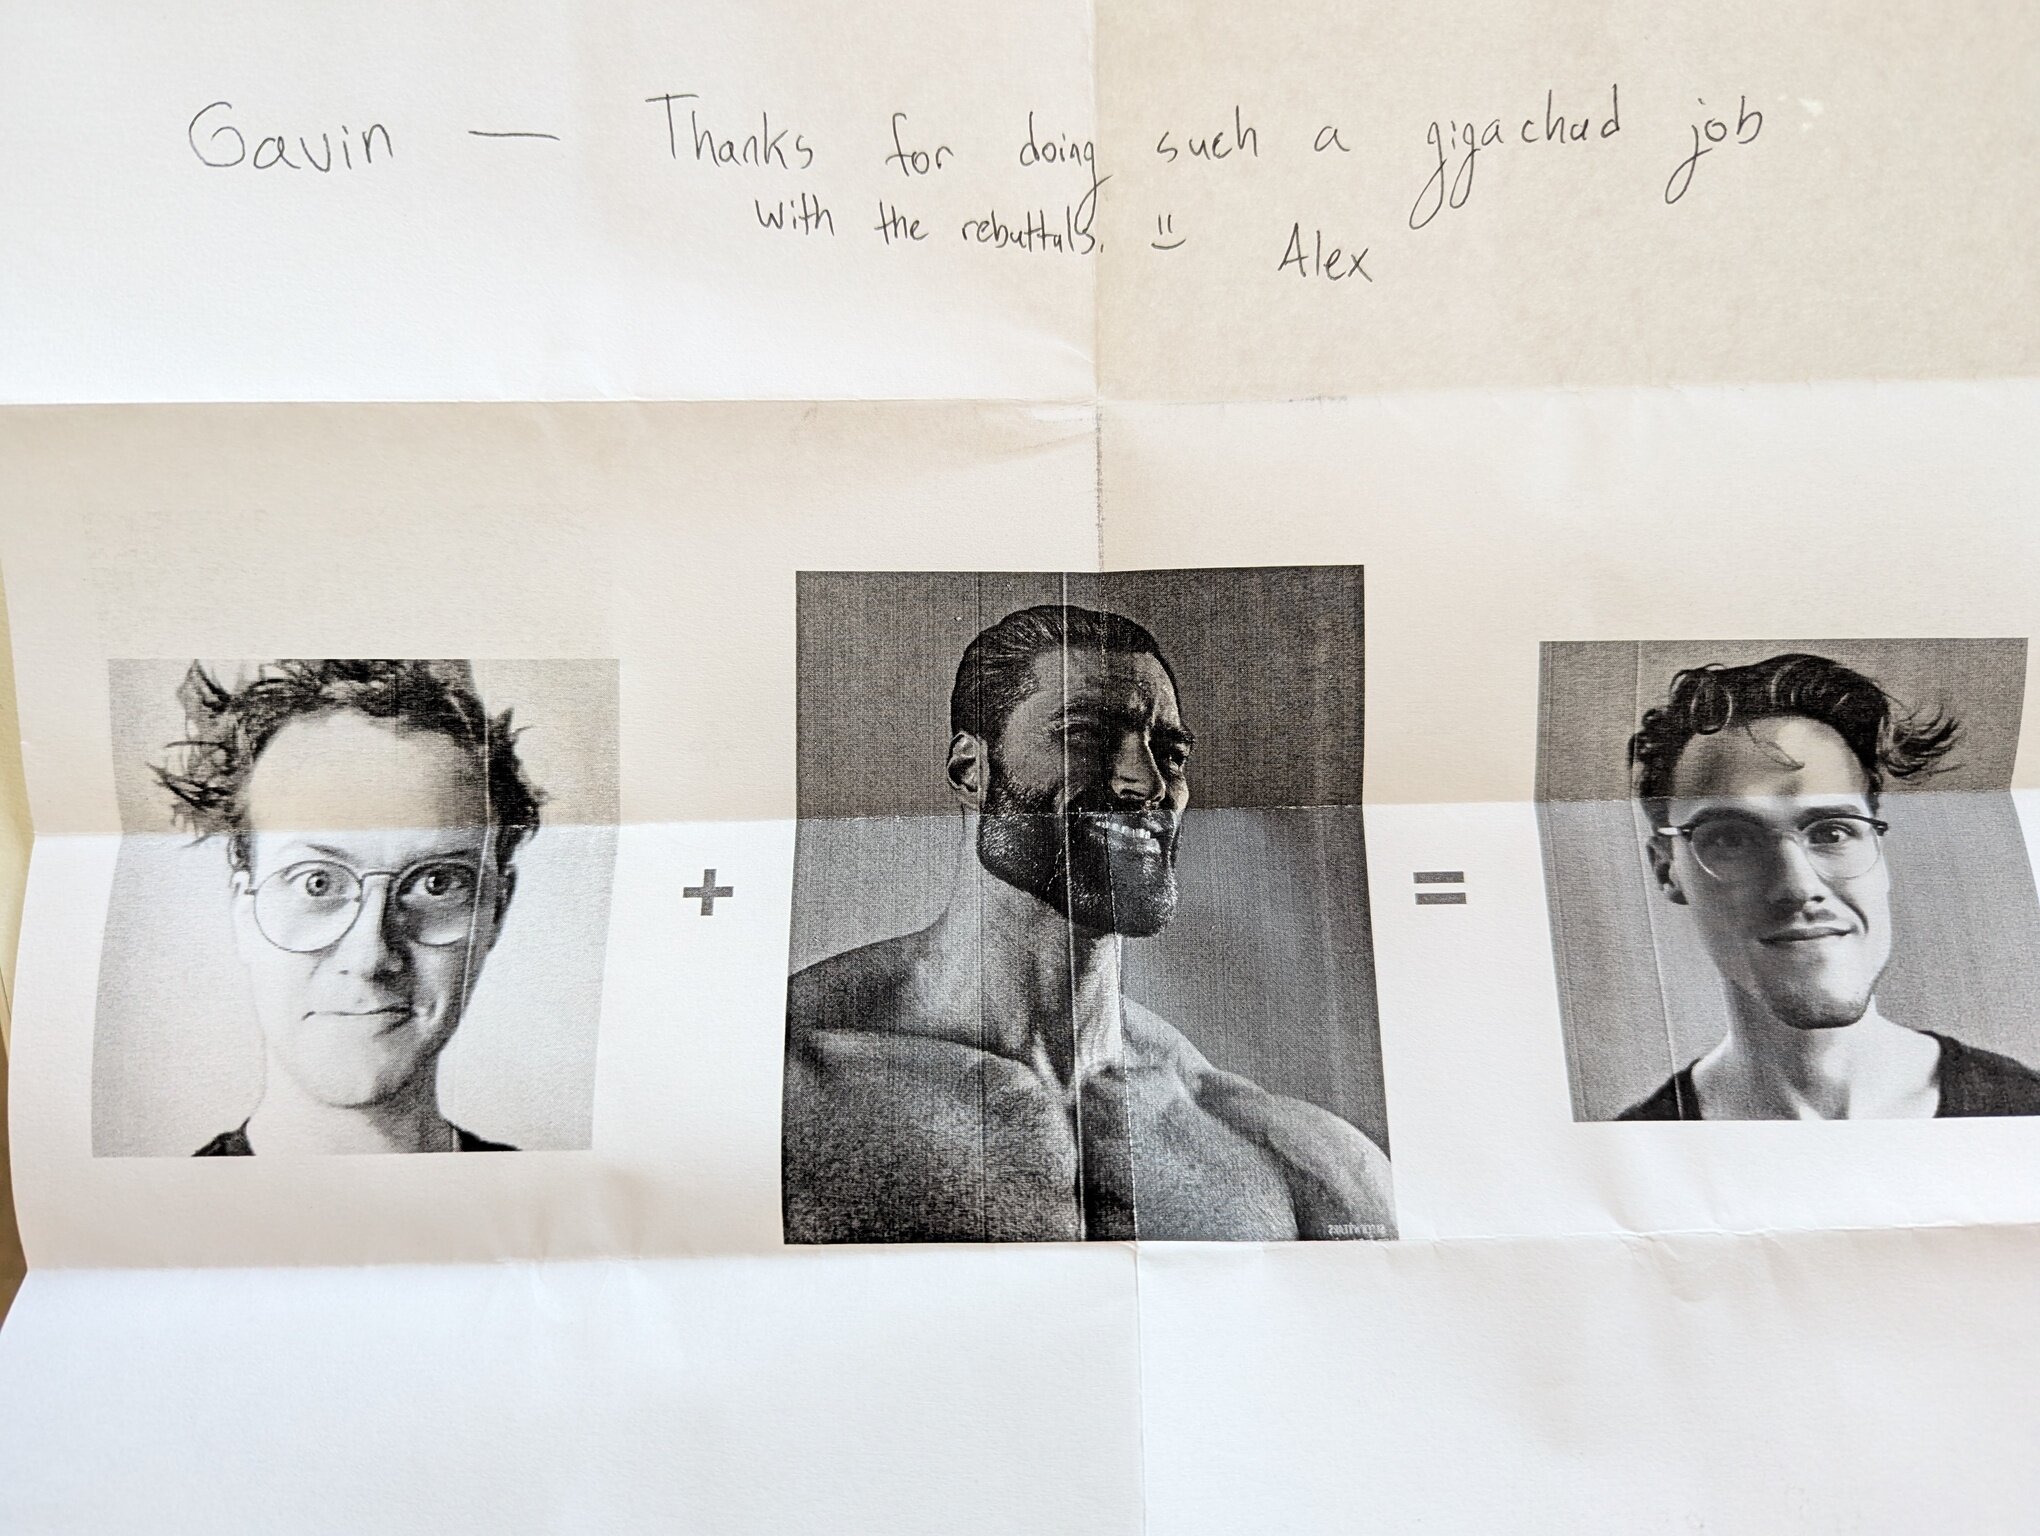 Gavin — Thanks for doing such a gigachad job
with the rebuttals. :)
Alex
+ =